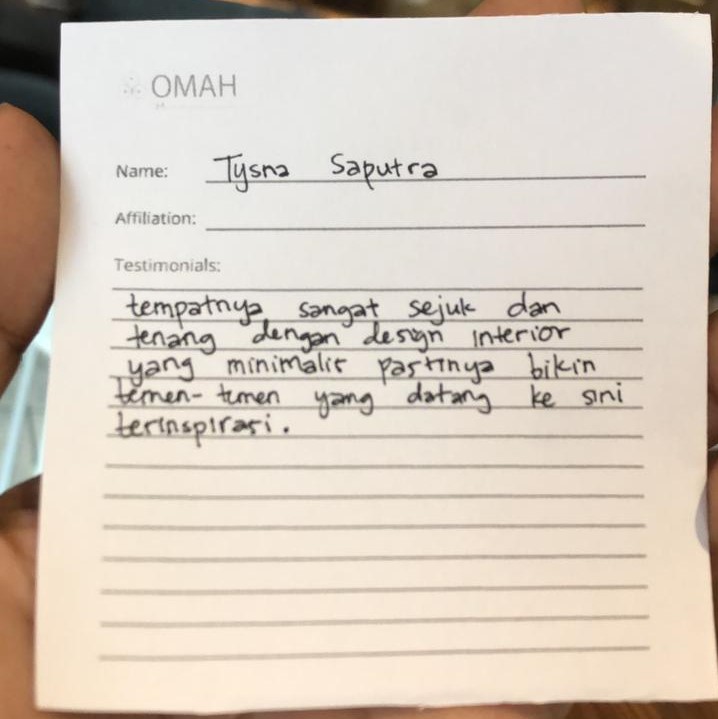 OMAH
Name: Tysna Saputra
Affiliation:
Testimonials:
tempatnya sangat sejuk dan
tenang dengan design interior
yang minimalis pastinya bikin
temen-temen yang datang ke sini
terinspirasi.